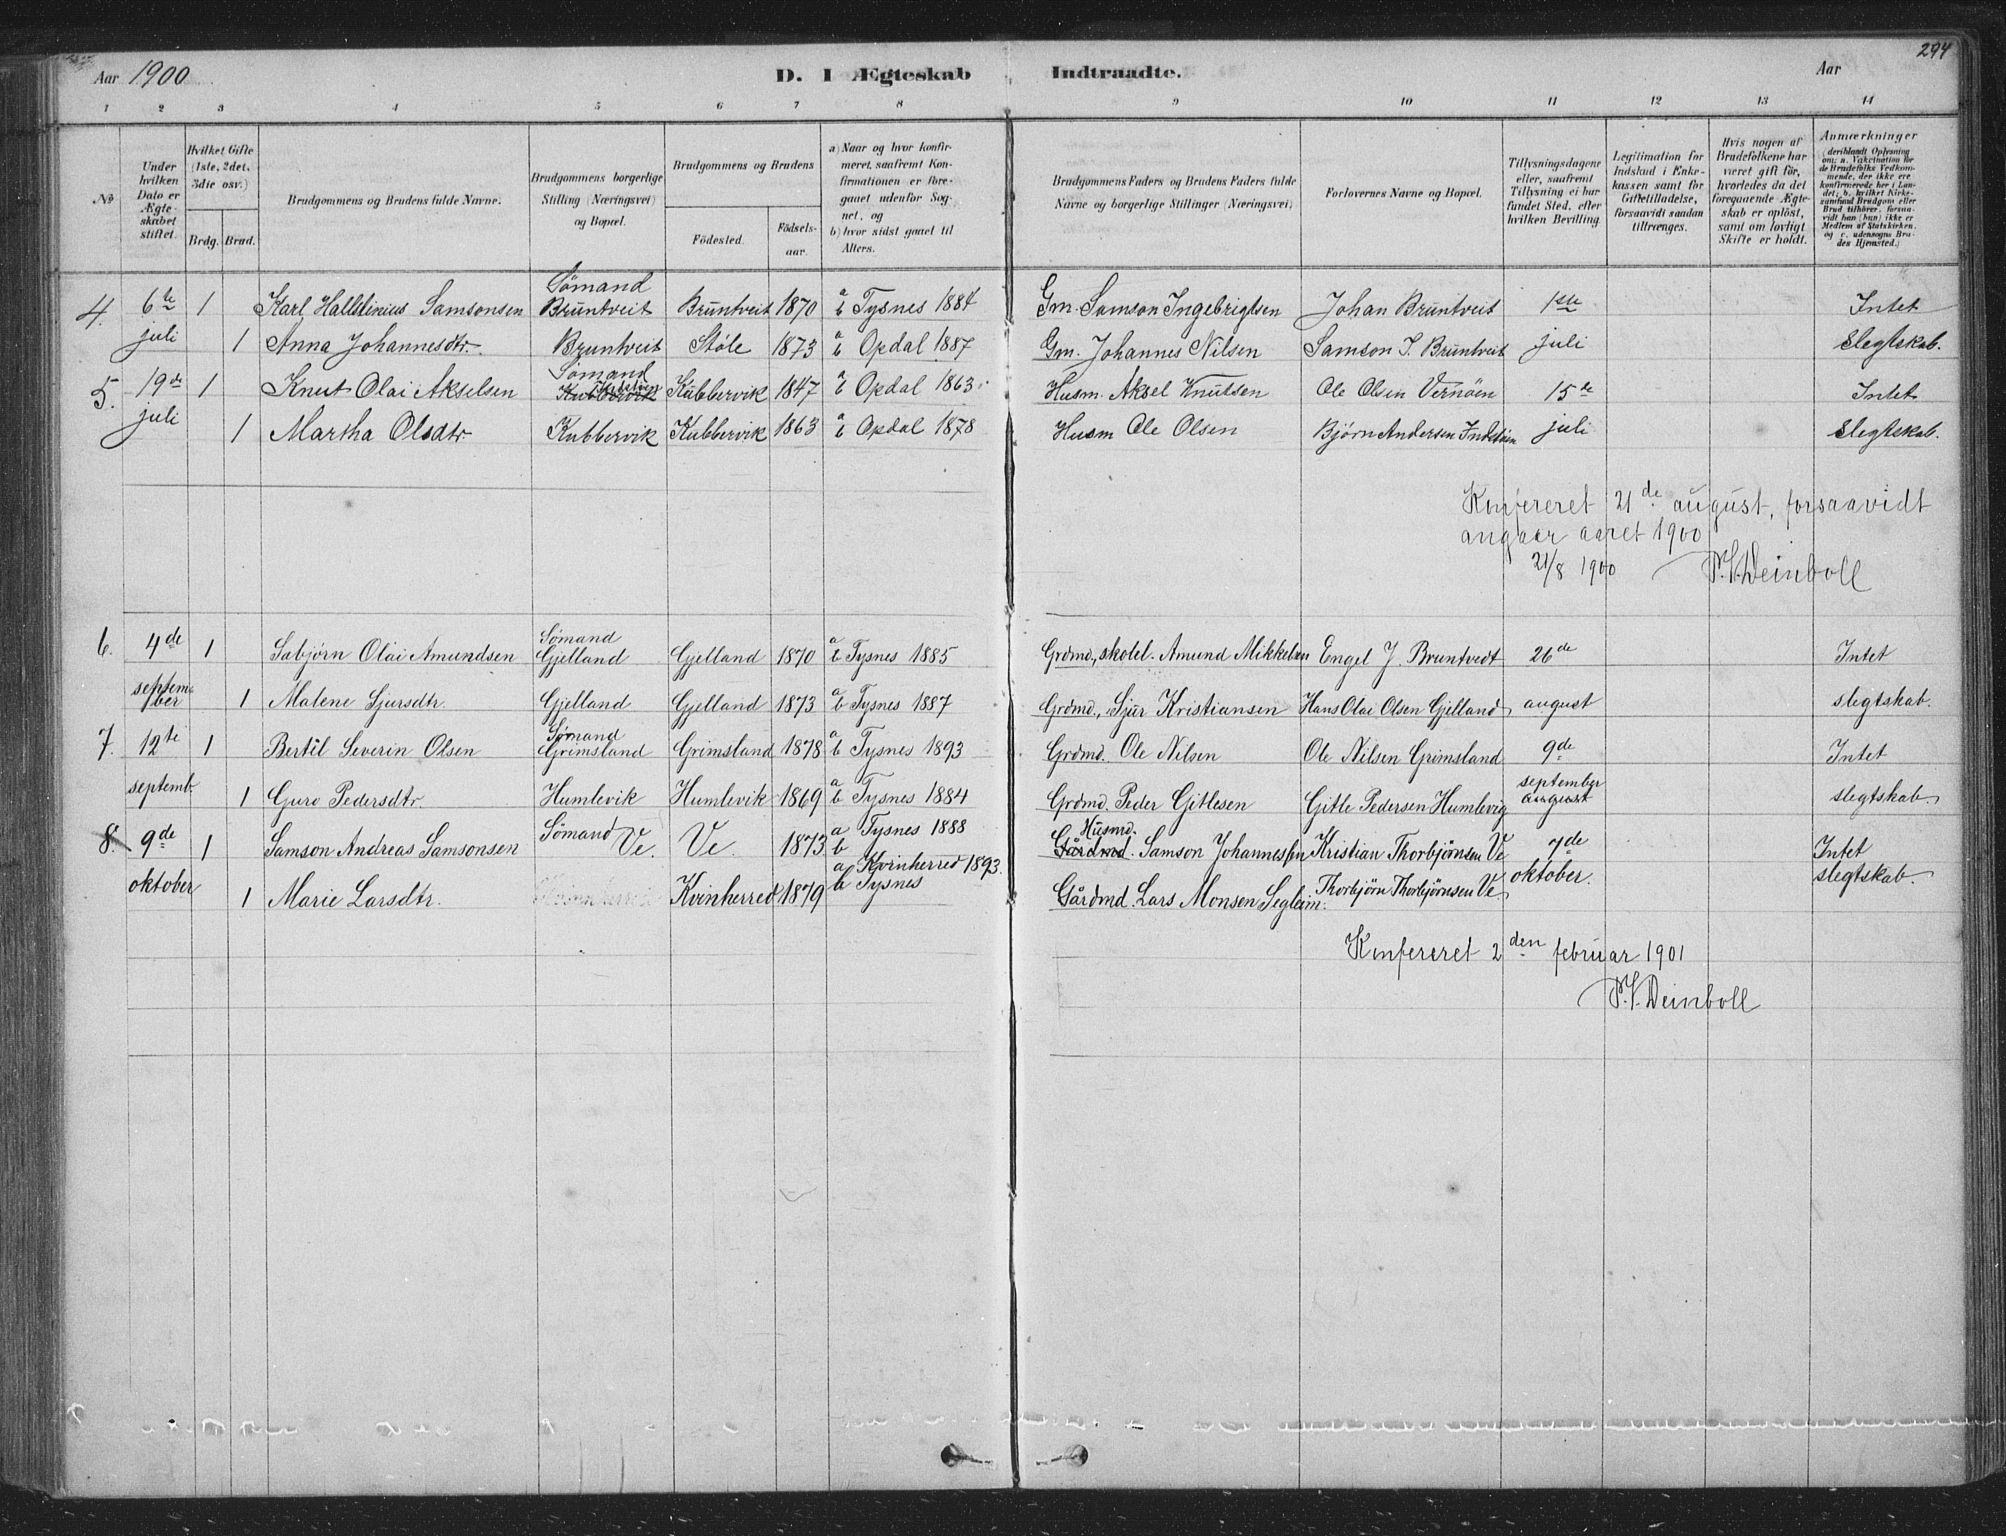 294
Aar 1900 D. I Ægteskab Indtraadte. Aar
1 2 3 4 5 6 7 8 9 10 11 12 13 14
No
Under hvilken Dato er Ægteskabet stiftet.
Hvilket Gifte (1ste, 2det, 3die osv.)
Brdg. Brud.
Brudgommens og Brudens fulde Navne.
Brudgommens borgerlige Stilling (Næringsvei) og Bopæl.
Brudgommens og Brudens
Födested. Födsels-aar.
a) Naar og hvor konfirmeret, saafremt Konfirmationen er foregaaet udenfor Sognet, og
b) hvor sidst gaaet til Alters.
Brudgommens Faders og Brudens Faders fulde Navne og borgerlige Stillinger (Næringsvei)
Forlovernes Navne og Bopæl.
Tillysningsdagene eller, saafremt Tillysning ei har fundet Sted, efter hvilken Bevilling.
Legitimation for Indskud i Enkekassen samt for Giftetilladelse, forsaavidt saadan tiltrænges.
Hvis nogen af Brudefolkene har været gift för, hvorledes da det foregaaende Ægteskab er oplöst, samt om lovligt Skifte er holdt.
Anmærkninger (deriblandt Oplysning om: a. Vakcination for de Brudefolks Vedkommende, der ikke ere konfirmerede her i Landet; b. hvilket Kirkesamfund Brudgom eller Brud tilhörer, forsaavidt han (hun) ikke er Medlem af Statskirken, og c. udensogns Brudes Hjemsted.)
4. 6te 1 Karl Hallstinius Samsonsen Sømand Bruntveit Bruntveit 1870 a b Tysnes 1884 Gm. Samson Ingebrigtsen Johan Bruntveit 1ste Intet
juli 1 Anna Johannesdtr. Bruntveit Støle 1873 a b Opdal 1887 Gm. Johannes Nilsen Samson I. Bruntveit juli slegtskab.
5. 19de 1 Knut Olai Akselsen Sømand Kubbervik Kubbervik 1847 a b Opdal 1863 Husm. Aksel Knutsen Ole Olsen Vernøen 15de Intet
juli 1 Martha Olsdtr. Kubbervik Kubbervik 1863 a b Opdal 1878 Husm Ole Olsen Bjørn Andersen juli slegtskab.
Konfereret 21de august, forsaavidt
angaar aaret 1900
21/8 1900 P. V. Deinboll
6. 4de 1 Sabjørn Olai Amundsen Sømand Gjelland Gjelland 1870 a b Tysnes 1885 Grdmd, skolel. Amund Mikkelsen Engel J Bruntvedt 26de Intet
september 1 Malene Sjursdtr. Gjelland Gjelland 1873 a b Tysnes 1887 Grdmd., Sjur Kristiansen Hans Olai Olsen Gjelland august slegtskab.
7. 12te 1 Bertil Severin Olsen Sømand Grimsland Grimsland 1878 a b Tysnes 1893 Grdmd. Ole Nilsen Ole Nilsen Grimsland 9de Intet
septemb. 1 Guro Pedersdtr. Humlevik Humlevik 1869 a b Tysnes 1884 Grdmd. Peder Gitlesen Gitle Pedersen Humlevig september august slegtskab.
8. 9de 1 Samson Andreas Samsonsen Sømand Ve. Ve. 1873 a Tysnes 1888 b Husmd. Gårdmd. Samson Johannessen Kristian Thorbjørnsen Ve 7de Intet
oktober 1 Marie Larsdtr. Kvinherred 1879 a Kvinherred 1893. b Tysnes Gårdmd. Lars Monsen Segleim. Thorbjørn Thorbjørnsen Ve. oktober. slegtskab.
Konfereret 2den februar 1901
P. V. Deinboll